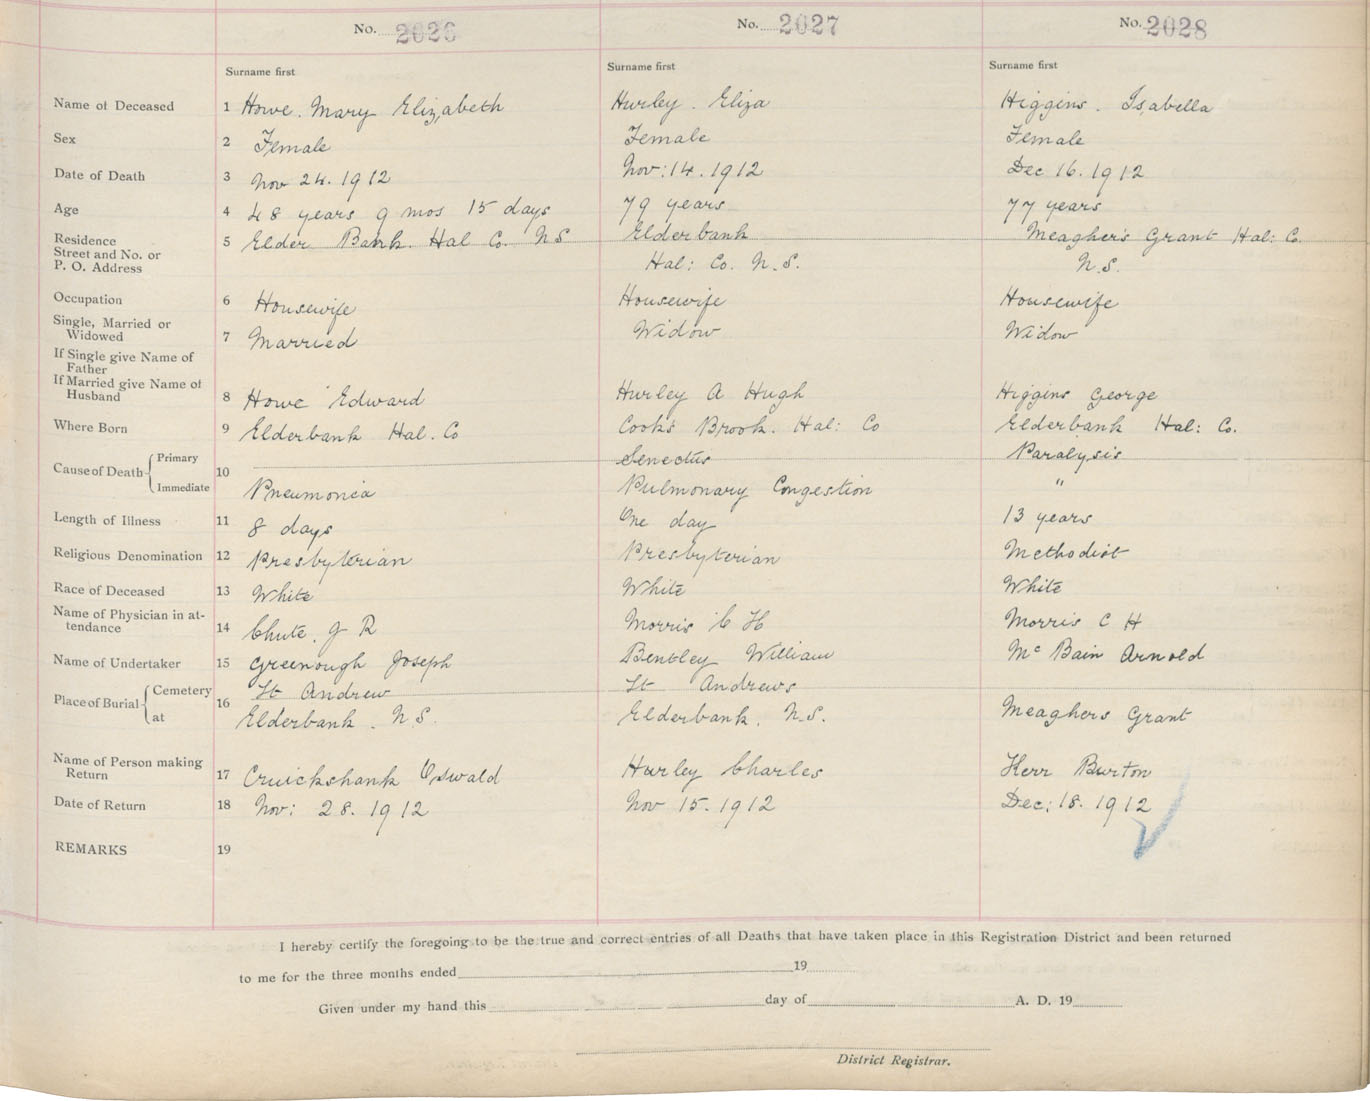 No. 2026 No. 2027 No. 2028
Surname first Surname first Surname first
Name of Deceased 1 Howe. Mary Elizabeth Hurley. Eliza Higgins. Isabella
Sex 2 Female Female Female
Date of Death 3 Nov 24. 1912 Nov: 14. 1912 Dec 16. 1912
Age 4 48 years 9 mos 15 days 79 years 77 years
Residence 5 Elder Bank. Hal Co. N S Elderbank Meagher's Grant Hal: Co.
Street and No. or
P. O. Address Hal: Co. N. S. N. S.
Occupation 6 Housewife Housewife Housewife
Single, Married or
Widowed 7 Married Widow Widow
If Single give Name of
Father
If Married give Name of
Husband 8 Howe Edward Hurley A Hugh Higgins George
Where Born 9 Elderbank Hal. Co Cook's Brook. Hal: Co Elderbank Hal: Co.
Cause of Death Primary 10 Senectus Paralysis
Immediate Pneumonia Pulmonary Congestion "
Length of Illness 11 8 days One day 13 years
Religious Denomination 12 Presbyterian Presbyterian Methodist
Race of Deceased 13 White White White
Name of Physician in at-
tendance 14 Chute. J R Morris C H Morris C H
Name of Undertaker 15 Greenough Joseph Bentley William Mc Bain Arnold
Place of Burial Cemetery 16 St Andrew St Andrews
at Elderbank. N S. Elderbank. N. S. Meaghers Grant
Name of Person making
Return 17 Cruickshank Oswald Hurley Charles Kerr Burton
Date of Return 18 Nov: 28. 1912 Nov 15. 1912 Dec: 18. 1912
REMARKS 19
I hereby certify the foregoing to be the true and correct entries of all Deaths that have taken place in this Registration District and been returned
to me for the three months ended 19
Given under my hand this day of A. D. 19
District Registrar.